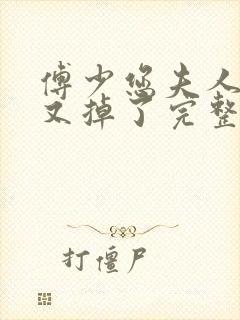 傅少您夫人
又掉了完整
打僵尸